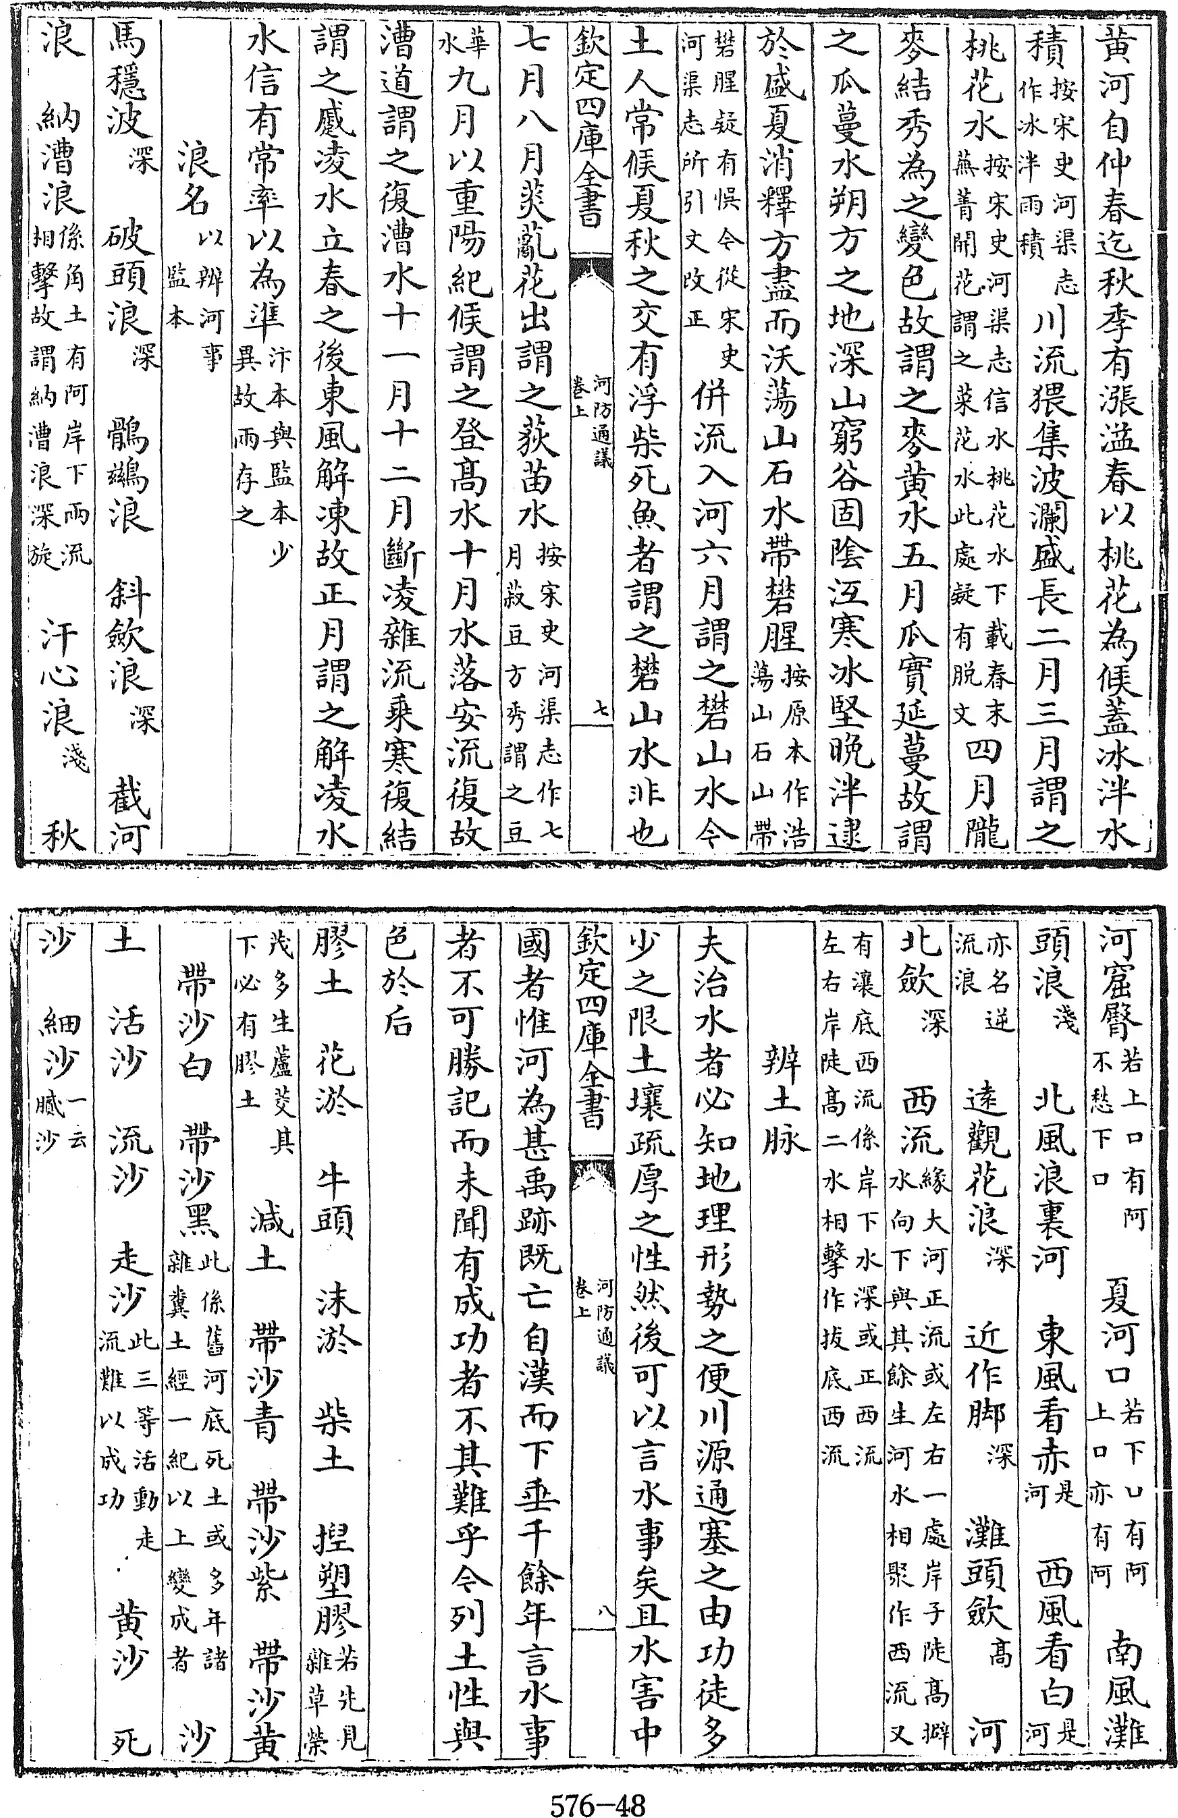 黄河自仲春迄秋季有漲溢春以桃花為候蓋冰泮水
積按宋史河渠志作冰泮雨積川流猥集波瀾盛長二月三月謂之
桃花水按宋史河渠志信水桃花水下載春末蕪菁開花謂之菜花水此處疑有脱文四月隴
麥結秀為之變色故謂之麥黄水五月瓜實延蔓故謂
之瓜蔓水朔方之地深山窮谷固陰沍寒冰堅晚泮逮
於盛夏消釋方盡而沃蕩山石水帶礬腥按原本作浩蕩山石山帶
礬腥疑有悞今從宋史河渠志所引文改正併流入河六月謂之礬山水今
土人常候夏秋之交有浮柴死魚者謂之礬山水非也
欽定四庫全書
河防通議
卷上
七
七月八月菼薍花出謂之荻苗水按宋史河渠志作七月菽豆方秀謂之豆
華水九月以重陽紀候謂之登高水十月水落安流復故
漕道謂之復漕水十一月十二月斷凌雜流乘寒復結
謂之蹙凌水立春之後東風解凍故正月謂之解凌水
水信有常率以為準汴本與監本少異故兩存之
浪名以辨河事監本
馬穩波深 破頭浪深 鶻鷀浪 斜歛浪深 截河
浪 納漕浪係角土有阿岸下兩流相擊故謂納漕浪深旋 汗心浪淺 秋
河窟臀若上口有阿不愁下口 夏河口若下口有阿上口亦有阿 南風灘
頭浪淺 北風浪裏河 東風看赤是河 西風看白是河
亦名逆流浪 遠觀花浪深 近作脚深 灘頭歛高 河
北歛深 西流緣大河正流或左右一處岸子陡高擗水向下與其餘生河水相聚作西流又
有瀼底西流係岸下水深或正西流左右岸陡高二水相擊作拔底西流
辨土脉
夫治水者必知地理形勢之便川源通塞之由功徒多
少之限土壤疏厚之性然後可以言水事矣且水害中
欽定四庫全書
河防通議
卷上
八
國者惟河為甚禹跡既亡自漢而下垂千餘年言水事
者不可勝記而未聞有成功者不其難乎今列土性與
色於后
膠土 花淤 牛頭 沫淤 柴土 捏塑膠若先見雜草榮
茂多生蘆茭其下必有膠土 減土 帶沙青 帶沙紫 帶沙黄
帶沙白 帶沙黑此係舊河底死土或多年諸雜糞土經一紀以上變成者 沙
土 活沙 流沙 走沙此三等活動走流難以成功 黄沙 死
沙 細沙一云膩沙
576-48